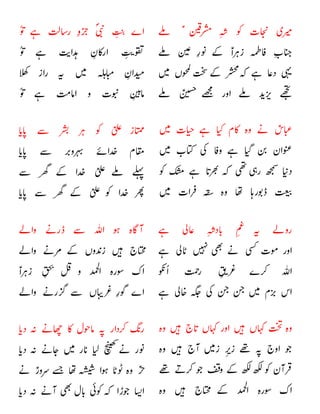 میری نجات کو شہِ مشرقین ملے
اے بنتِ نبیؐ جزوِ رسالت ہے تو
جناب فاطمہ زہراؑ کے نورِ عین ملے
تقویتِ ارکانِ ہدایت ہے تو
یہی دعا ہے کہ محشر کے سخت لمحوں میں
میدانِ مباہلہ میں یہ راز کھلا
تجھے یزید ملے اور مجھے حسینؑ ملے
مابینِ نبوت و امامت ہے تو
عباسؑ نے وہ کام کیا ہے حیات میں
ممتاز علیؑ کو ہر بشر سے پایا
عنوان بن گیا ہے وفا کی کتاب میں
مقام خدائے بہروبر سے پایا
دنیا سمجھ رہی تھی کہ بھرتا ہے مشک کو
پہلے ملے علیؑ خدا کے گھر سے
بیعت ڈبو رہا تھا وہ سقہ فرات میں
پھر خدا کو علیؑ کے گھر سے پایا
رولے یہ غمِ بادشہِ عالی ہے
آگاہ ہو اللہ سے ڈرنے والے
اور موت کسی نے بھی نہیں ٹالی ہے
محتاج ہیں زندوں کے مرنے والے
اللہ کرے غریقِ رحمت انکو
اک سورہ الحمد و قل بحقِ زہراؑ
اس بزم میں جن جن کی جگہ خالی ہے
اے گورِ غریباں سے گزرنے والے
وہ تخت کہاں ہیں اور کہاں تاج ہیں وہ
رنگ کردار پہ ماحول کا چھانے نہ دیا
جو اوج پہ تھے زیرِ زمیں آج ہیں وہ
نور نے کھینچ لیا نار میں جانے نہ دیا
قرآن کو لکھ لکھ کے وقف جو کرتے تھے
حرؑ وہ ٹوٹا ہوا شیشہ تھا جسے سرورؑ نے
اک سورہ الحمد کے محتاج ہیں وہ
ایسا جوڑا کہ کوئی بال بھی آنے نہ دیا